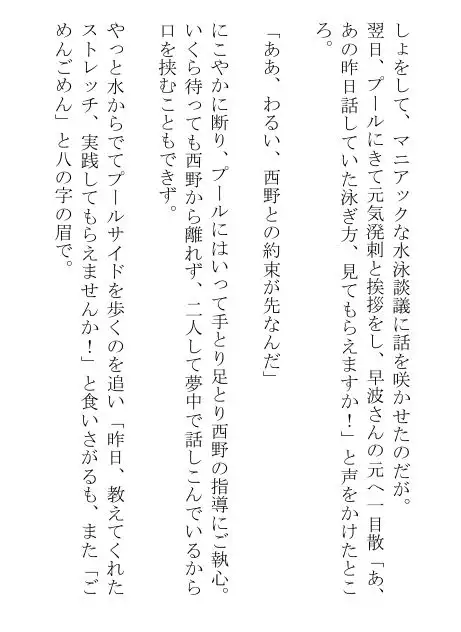 しょをして、マニアックな水泳談議に話を咲かせたのだが。
翌日、プールにきて元気溌剌と挨拶をし、早波さんの元へ一目散「あ、
あの昨日話していた泳ぎ方、見てもらえますか！」と声をかけたとこ
ろ。
「ああ、わるい、西野との約束が先なんだ」
にこやかに断り、プールにはいって手とり足とり西野の指導にご執心。
いくら待っても西野から離れず、二人して夢中で話しこんでいるから
口を挟むこともできず。
やっと水からでてプールサイドを歩くのを追い「昨日、教えてくれた
ストレッチ、実践してもらえませんか！」と食いさがるも、また「ご
めんごめん」と八の字の眉で。